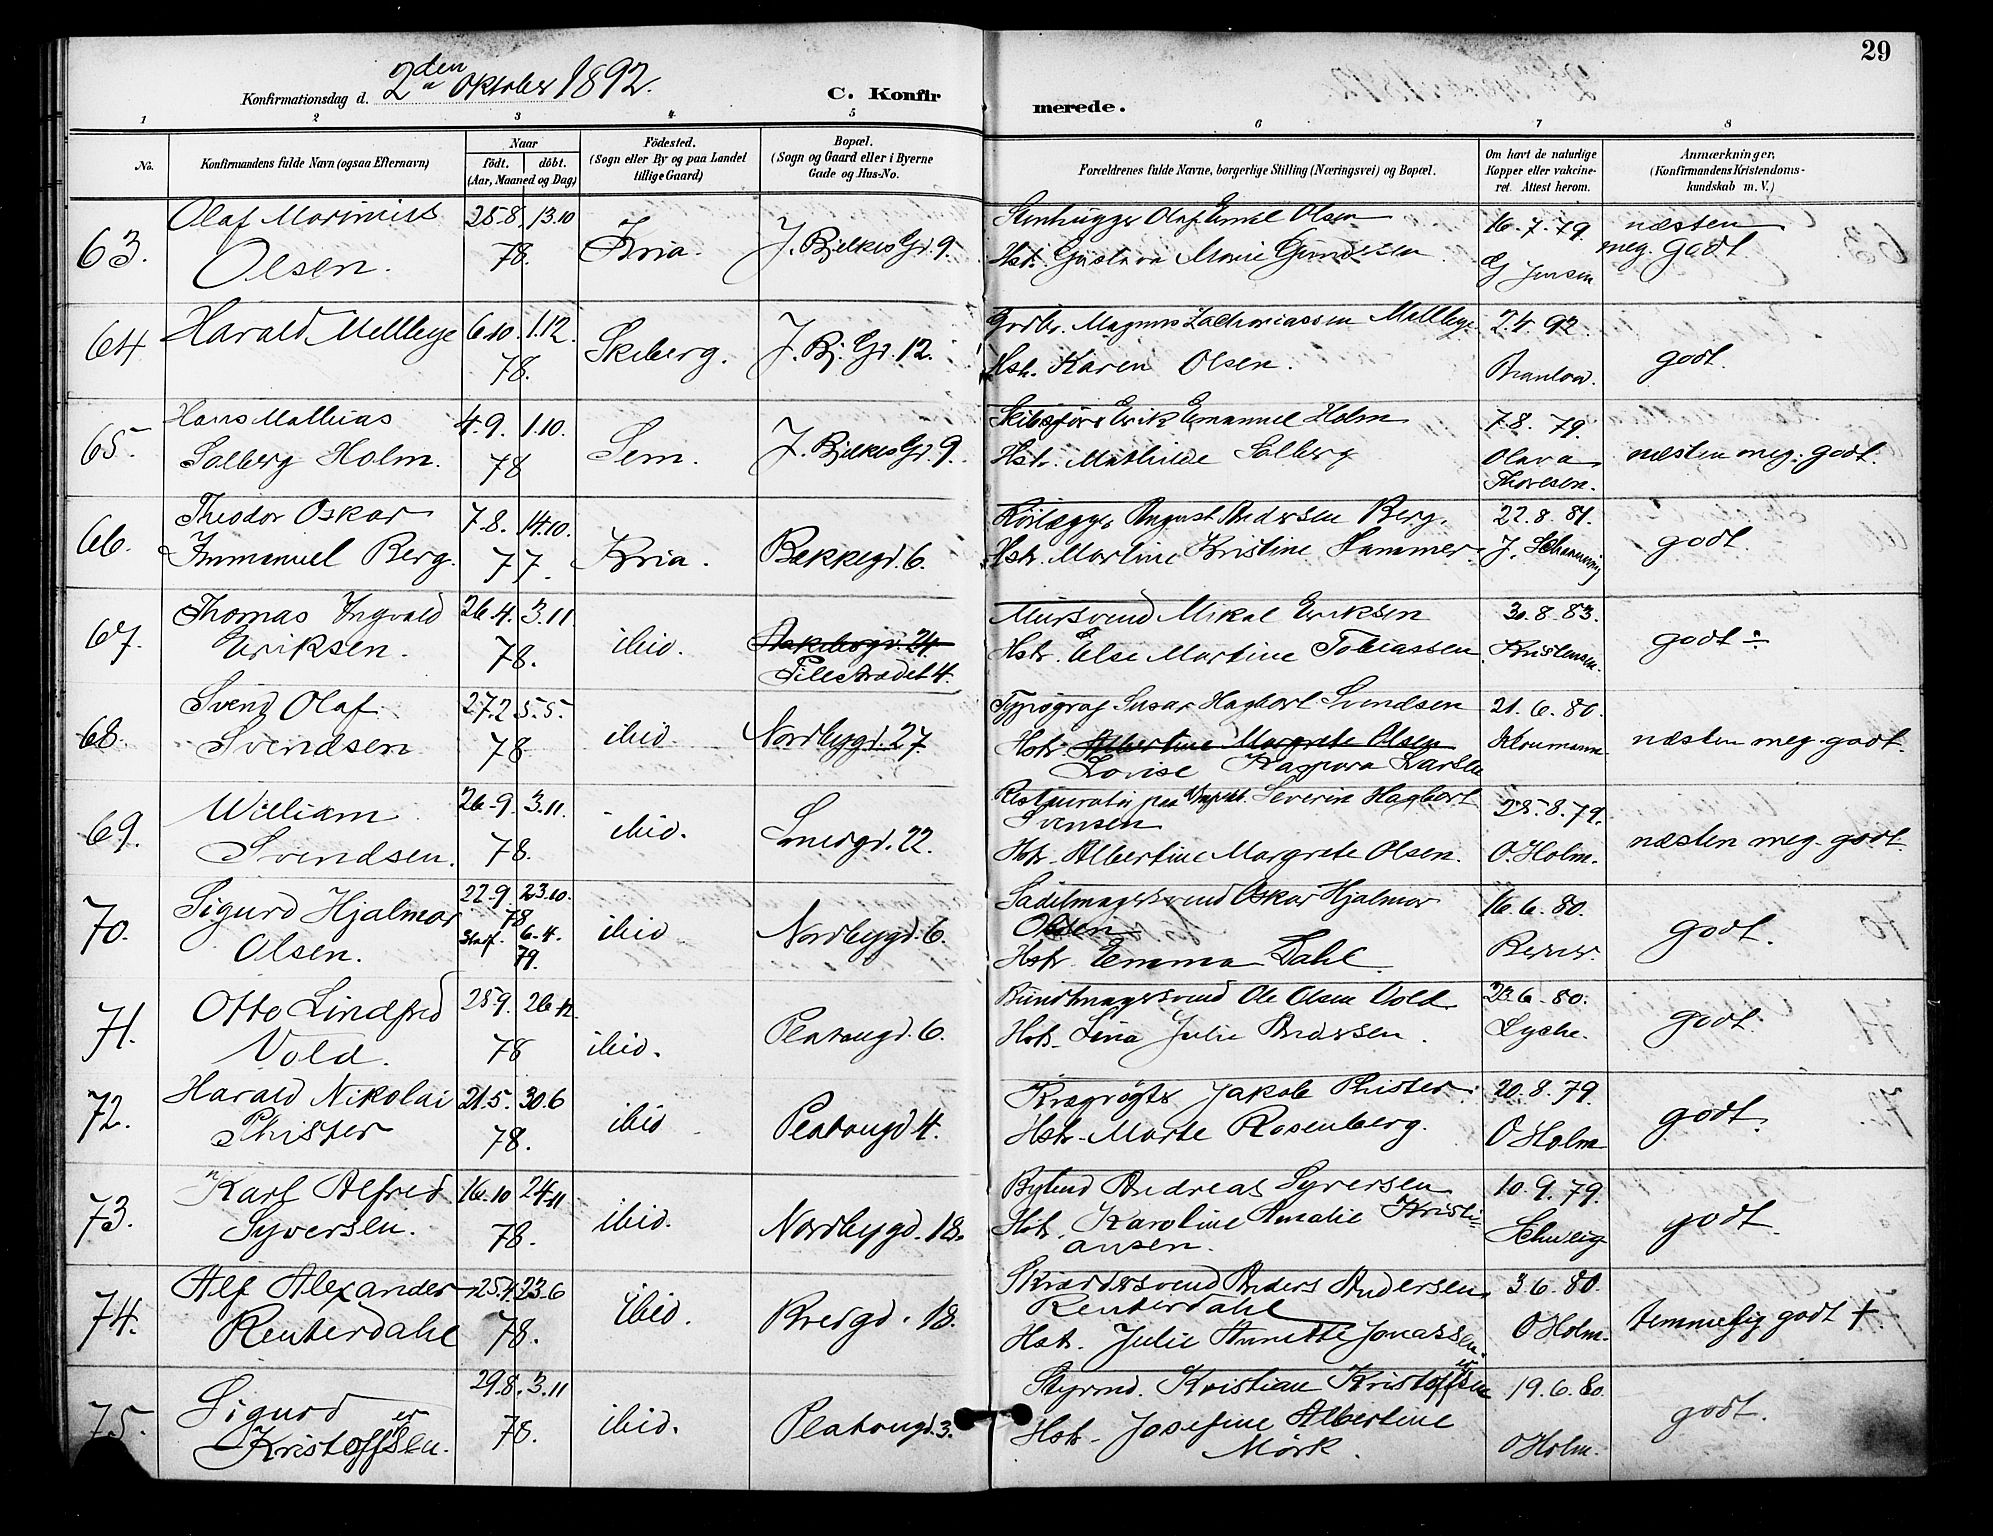 29
Konfirmationsdag d. 2den Oktober 1892.
C. Konfir merede.
1 2 3 4 5 6 7 8
No.
Konfirmandens fulde Navn (ogsaa Efternavn)
Naar
födt. döbt.
(Aar, Maaned og Dag)
Födested.
(Sogn eller By og paa Landet
tillige Gaard)
Bopæl.
(Sogn og Gaard eller i Byerne
Gade og Hus-No.
Forældrenes fulde Navne, borgerlige Stilling (Næringsvei) og Bopæl.
Om havt de naturlige
Kopper eller vakcine-
ret. Attest herom.
Anmærkninger,
(Konfirmandens Kristendoms-
kundskab m. V.)
63. Olaf Marinius
Olsen.
25-8. 13.10
78.
Kria.
J. Bjelkes Gd. 9.
Stenhugger Olaf Emil Olsen
Hst. Gustava Marie Gundersen
16.7.79.
G Jensen
næsten
meg. godt.
64 Harald Mellbye
6.10. 1.12.
78.
Skiberg.
J. Bj. Gd. 12.
Magnus Zachariassen Mellbye
Hst. Karen Olsen.
2.4.92
godt.
65. Hans Mathias
Solberg Holm.
4.9. 1.10.
78
Sem.
J. Bjelkes Gd. 9.
Skibsfører Erik Emanuel Holm
Hst. Mathilde Solberg
7.8.79.
Olava
Thoresen.
næsten meg. godt.
66. Theodor Oskar
Immanuel Berg.
7.8. 14.10.
77.
Kria.
Bakkegd. 6.
Rörlægger August Andersen Berg.
Hst. Martine Kristine Hammer.
22.8.81.
J. Schanning
godt.
67. Thomas Ingvald
Eriksen.
26.4. 3.11
78.
ibid.
Akebergvd. 24
Pilestrædet 4.
Mursvend Mikal Eriksen
Hst. Else Martine Tobiassen
30.8.83.
Kristensen.
godt ÷
68. Svend Olaf
Svendsen
27.2 5.5.
78
ibid.
Nordbygd. 27.
Typograf Hagbart Svendsen
Hst. Albertine Margrete Olsen
Lovise Kaspara Larsen
21.6.80.
næsten meg. godt.
69. William
Svendsen.
26.9. 3.11.
78.
ibid.
Smedgd. 22.
Severin Hagbart
Svensen
Hst. Albertine Margrete Olsen.
25.8.79.
O. Holm.
næsten meg. godt.
70. Sigurd Hjalmar
Olsen.
22.9. 23.10.
78
Stadf. 6.4.
79.
ibid
Nordbygd. 6.
Sadelmagersvend Oskar Hjalmar
Olsen
Hst. Emma Dahl.
16.6.80.
godt.
71. Otto Lindfred
Vold.
25.9. 26.12
78
ibid.
Platougd. 6.
Bundtmagersvend Ole Olsen Vold
Hst. Lina Julie Andersen.
23.6.80.
Lyche.
godt.
72. Harald Nikolai
Phister
21.5. 30.6
78.
ibid
Platougd. 4.
Jakob Phister.
Hst. Marte Rosenberg.
20.8.79.
O Holm
godt.
73. Karl Alfred
Syversen.
16.10 24.11
78.
ibid.
Nordbygd. 18.
Bybud Andreas Syversen
Hst. Karoline Amalie Kristi-
ansen.
10.9.79.
Schweig
godt.
74. Alf Alexander
Renterdahl
25.4. 23.6
78.
Ibid.
Bredgd. 18.
Skræddersvend Anders Andersen
Renterdahl
Hst. Julie Annette Jonassen.
3.6.80.
O Holm.
temmelig godt +.
75. Sigurd
Kristoffersen.
29.8. 3.11
78.
ibid.
Platougd. 3.
Styrmd. Kristian Kristoffersen
Hst. Josefine Albertine
Mörk.
19.6.80.
O Holm.
godt.